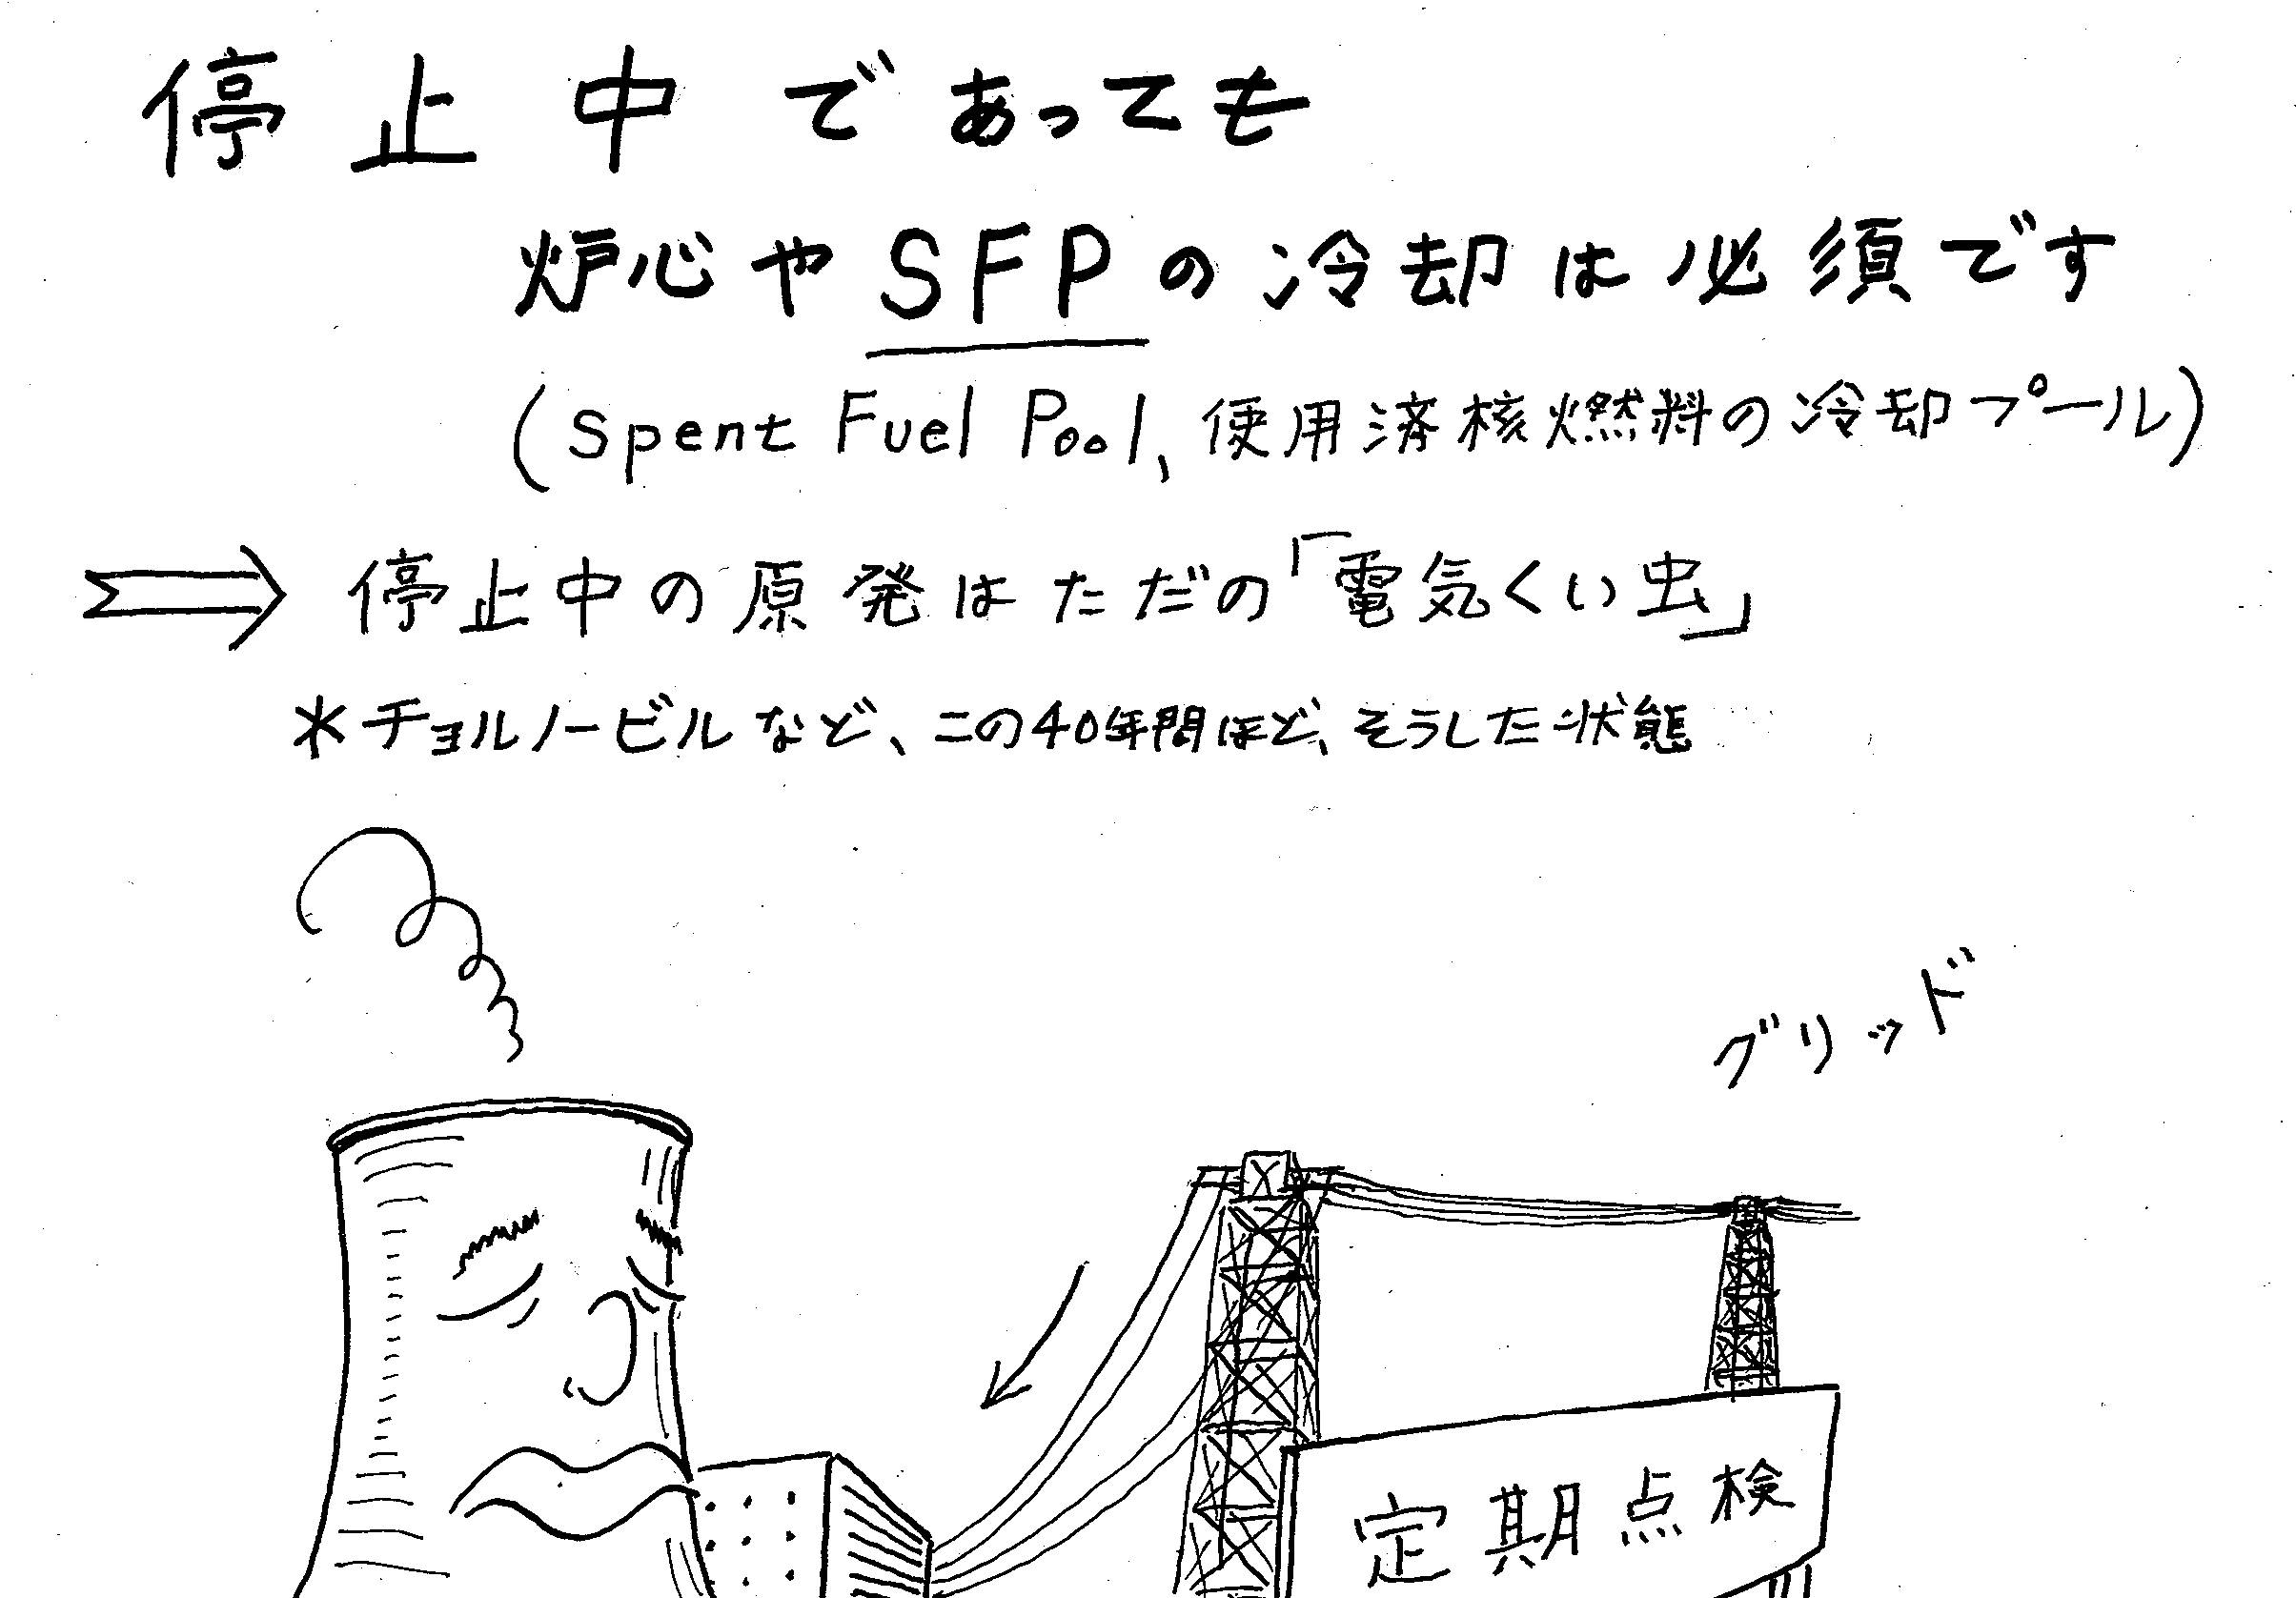 停止中であっても
炉心やSFPの冷却は必須です
(Spent Fuel Pool、使用済核燃料の冷却プール)
⇒ 停止中の原発はただの「電気くい虫」
＊チョルノービルなど、この40年間ほど、そうした状態
グリッド
定期点検